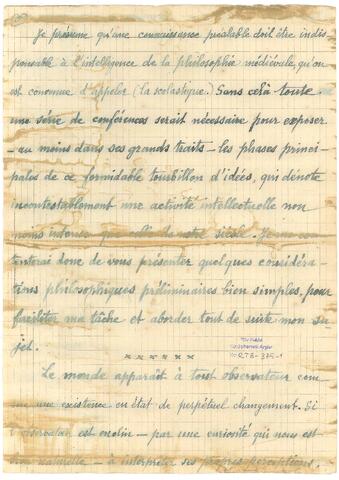 Je présume qu'une connaissance préalable doit être indis
pensable à l'intelligence de la philosophie médiévale, qu'on
est convenue d'appeler (la scolastique.) Sans celà toute
une série de conférences serait nécessaire pour exposer
- au moins dans ses grands traits - les phases princi-
pales de ce formidable tourbillon d'idées, qui dénote
incontestablement une activité intellectuelle non
moins intense que celle de notre siècle. Je me con
tenterai donc de vous présenter quelques considéra-
tions philosophiques préliminaires bien simples, pour
faciliter ma tâche et aborder tout de suite mon su
jet.
××××××
Le monde apparaît à tout observateur com-
me une existence en état de perpétuel changement. Si
l'observateur est enclin - par une curiosité qui nous est
naturelle - à interpréter ses propres perceptions,